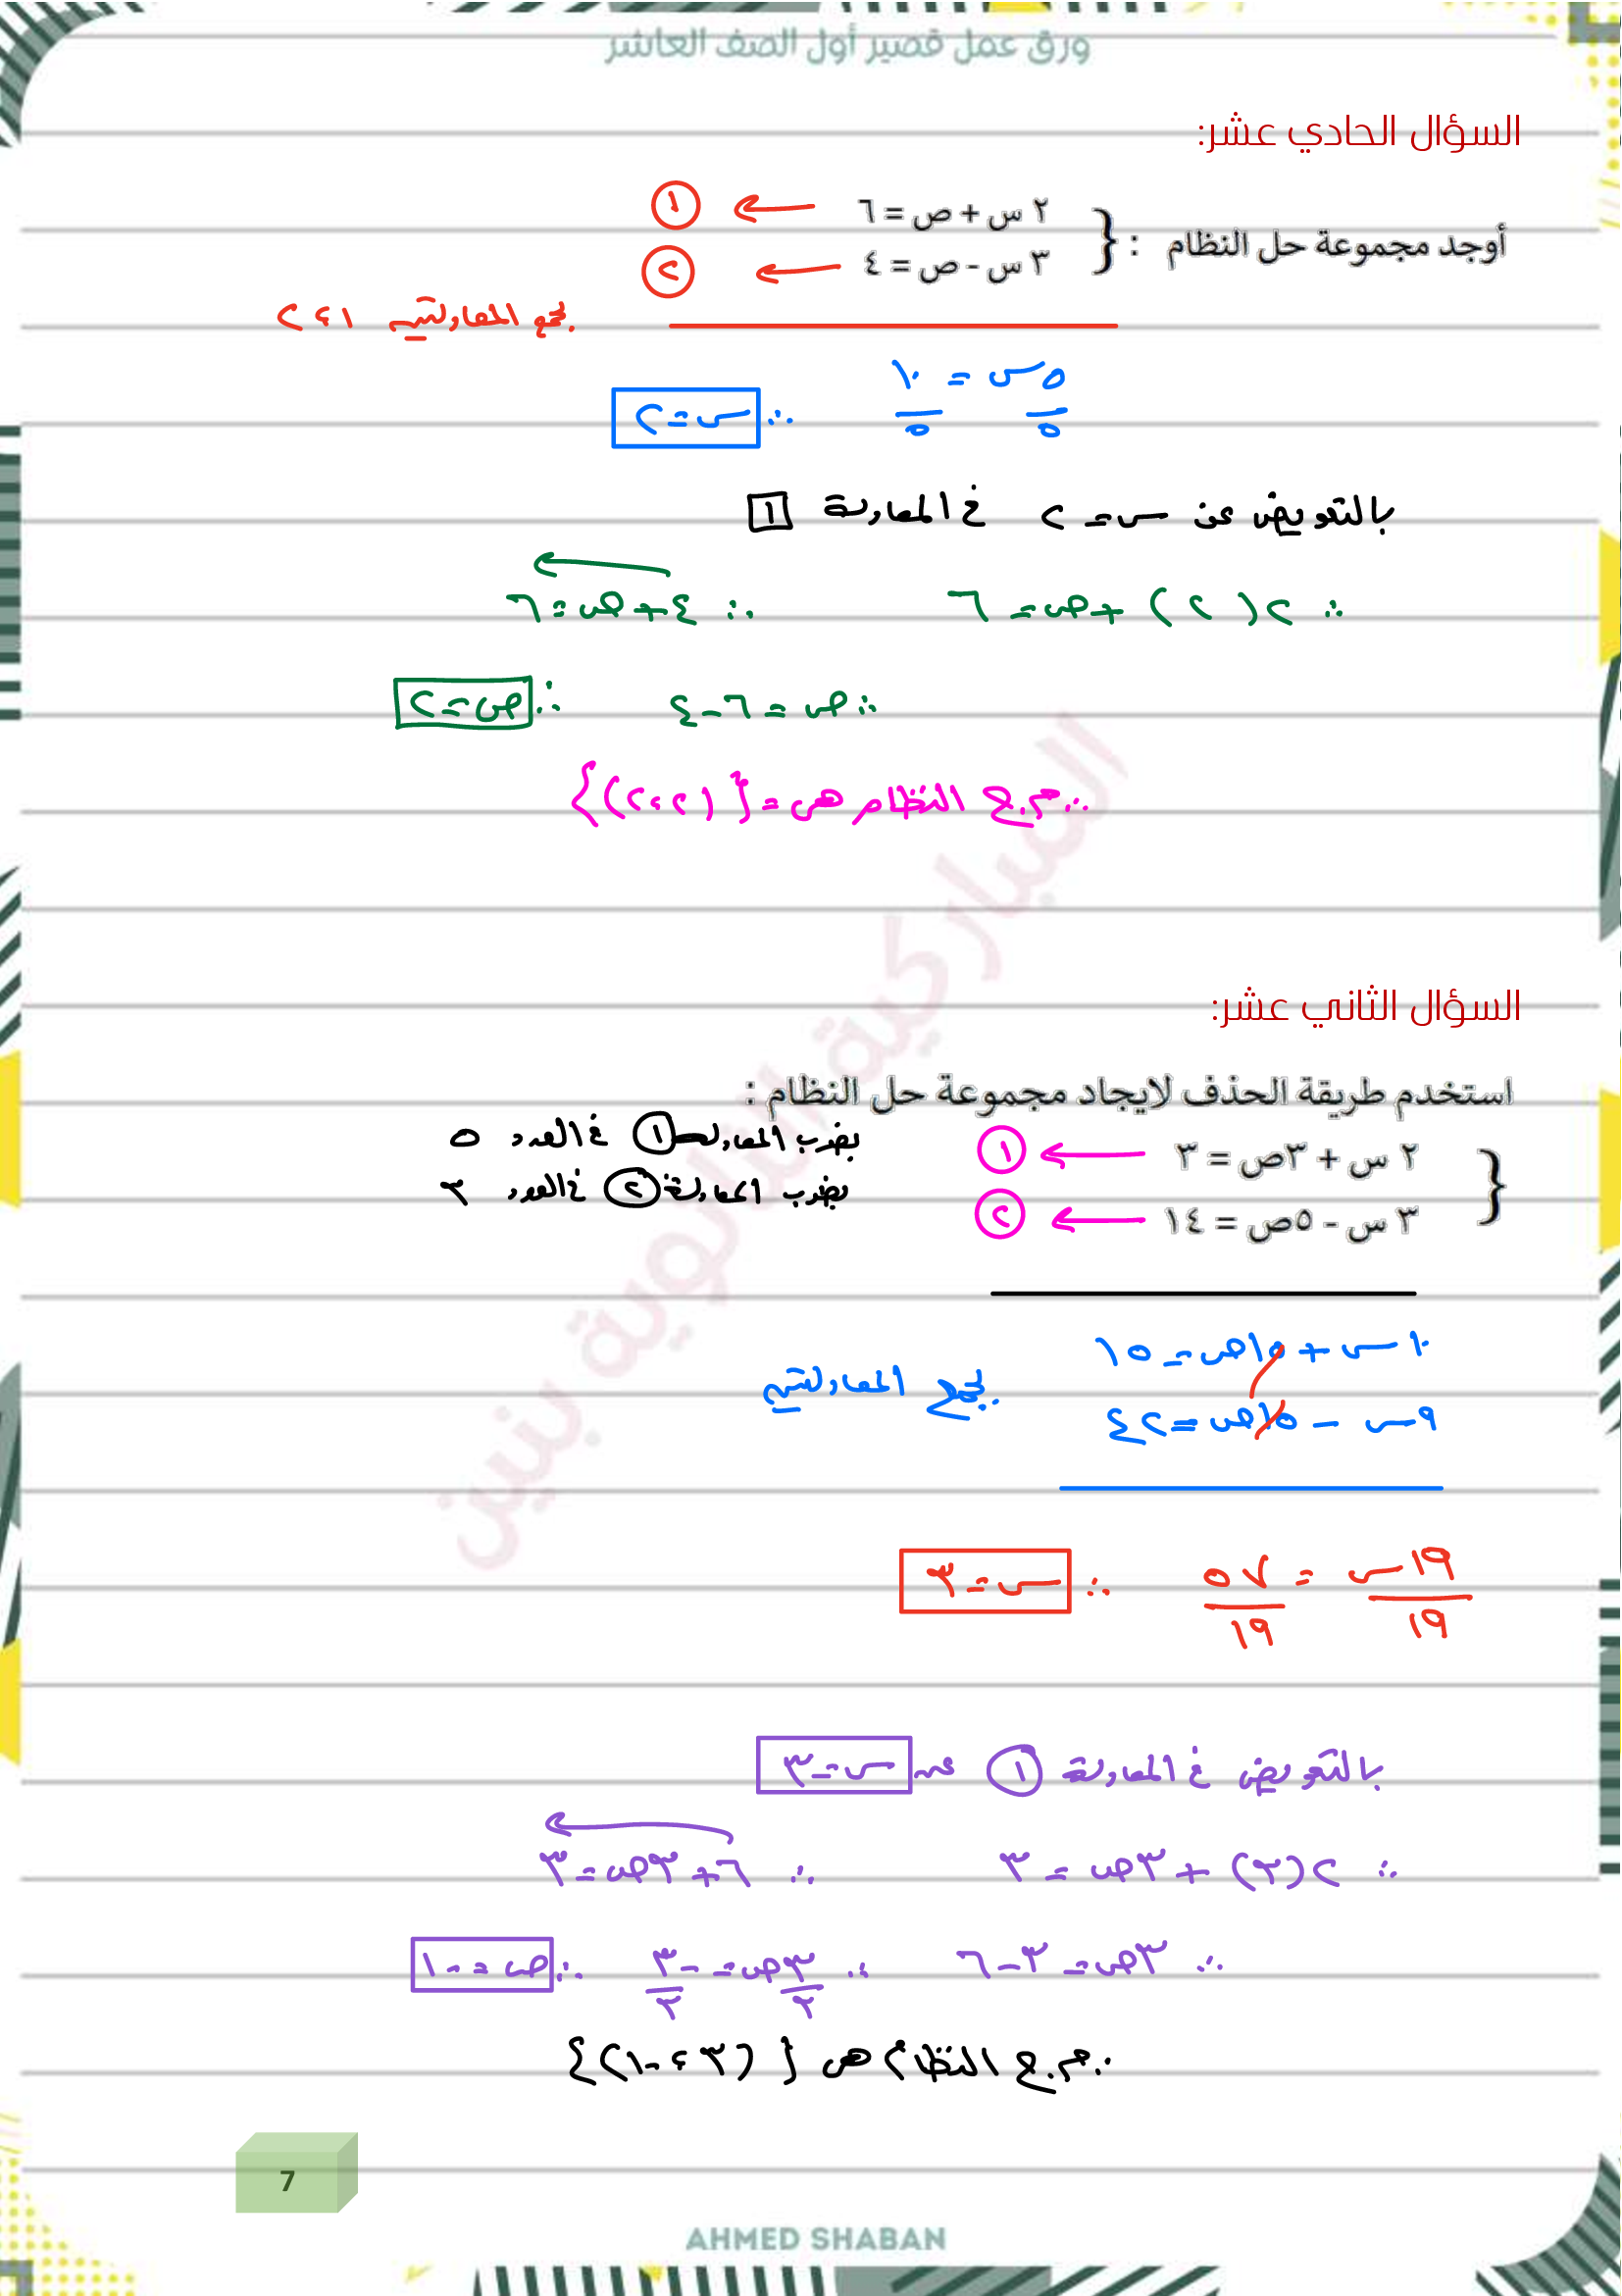 ورق عمل قصير أول الصف العاشر
السؤال الحادي عشر:
أوجد مجموعة حل النظام : {
٢ س + ص = ٦ ← ①
٣ س - ص = ٤ ← ②
بجمع المعادلتين ١ ، ٢
٥س = ١٠
٥ ٥
∴ س = ٢
بالتعويض عن س = ٢ في المعادلة ١
∴ ٢(٢) + ص = ٦ ∴ ٤ + ص = ٦
∴ ص = ٦ - ٤ ∴ ص = ٢
∴ م.ح النظام هى = {(٢ ، ٢)}
السؤال الثاني عشر:
استخدم طريقة الحذف لايجاد مجموعة حل النظام :
{ ٢ س + ٣ص = ٣ ← ① بضرب المعادلة ① في العدد ٥
٣ س - ٥ص = ١٤ ← ② بضرب المعادلة ② في العدد ٣
١٠س + ١٥ص = ١٥
بجمع المعادلتين
٩س - ١٥ص = ٤٢
١٩س = ٥٧ ∴ س = ٣
١٩ ١٩
بالتعويض في المعادلة ① عن س = ٣
∴ ٢(٣) + ٣ص = ٣ ∴ ٦ + ٣ص = ٣
∴ ٣ص = ٣ - ٦ ∴ ٣ص = -٣ ∴ ص = -١
٣ ٣
∴ م.ح النظام هى {(٣ ، -١)}
7
AHMED SHABAN
المباركية الثانوية بنين